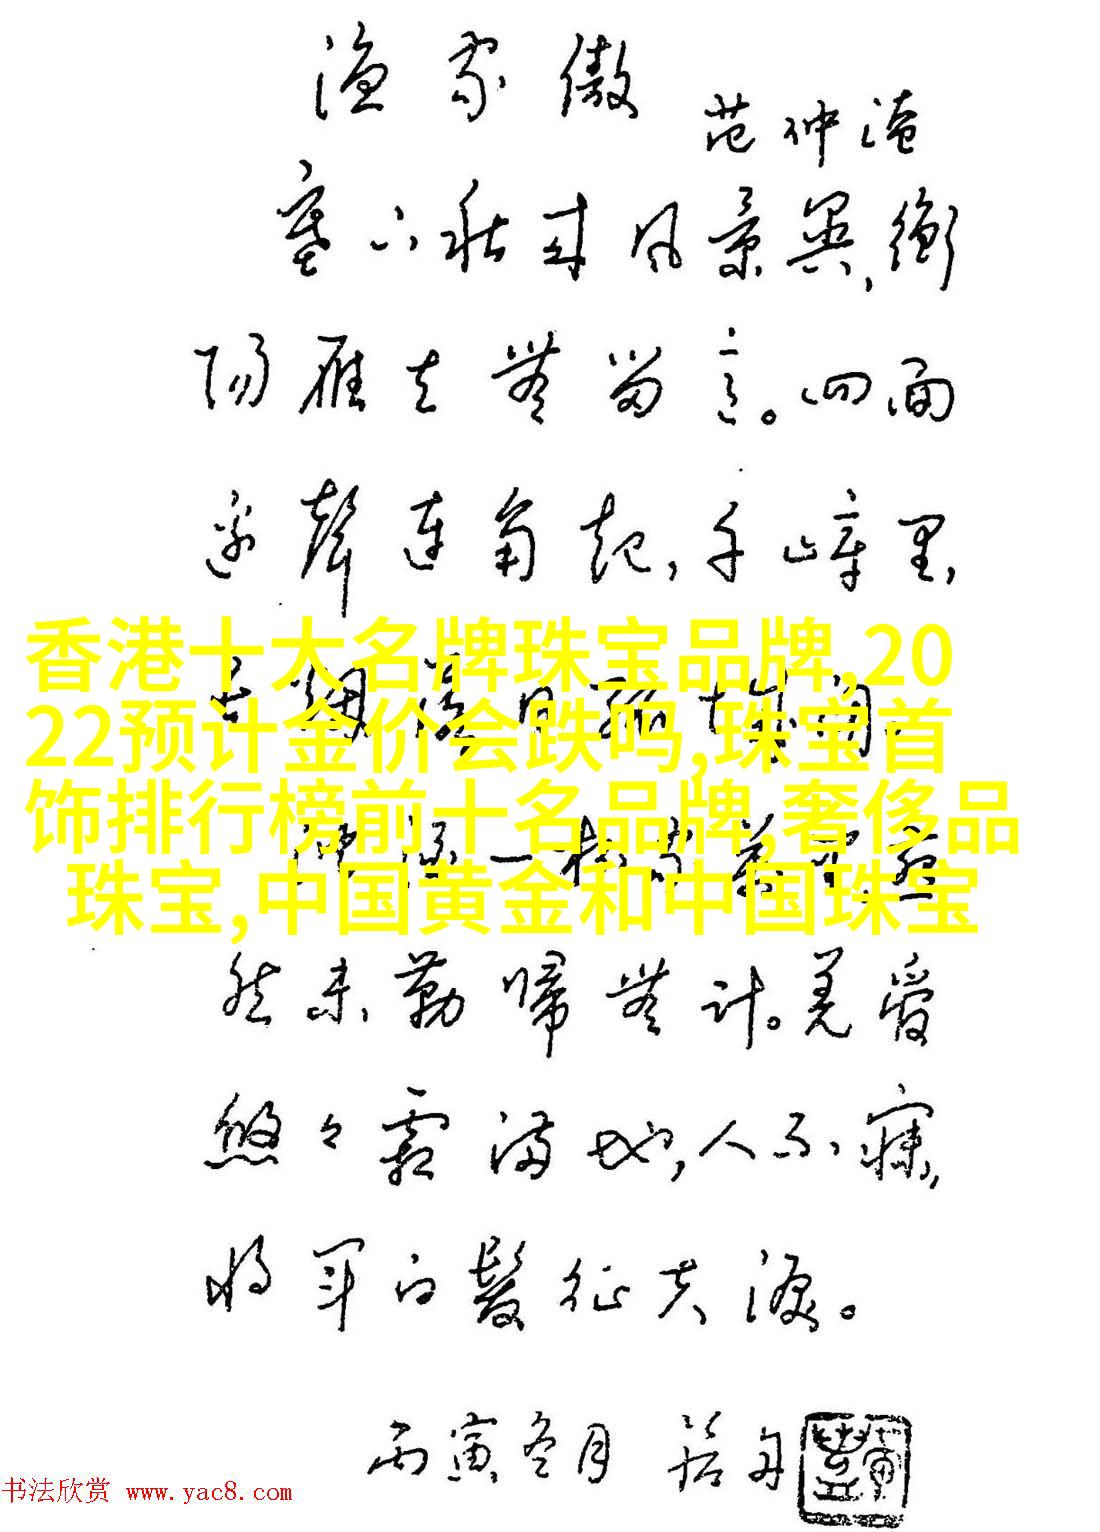 渔家傲
范仲淹
塞下秋来风景異,衡
阳雁去無留意。四面
邊聲连角起,千嶂里,
香港十大名牌珠宝品牌,20
22预计金价会跌吗,珠宝首
饰排行榜前十名品牌,奢侈品
珠宝,中国黄金和中国珠宝
然未勒歸無计。羌
悠々霜满地,人不寐,
将军白髮征夫淚。
丙寅冬月
书法欣赏 www.yac8.com